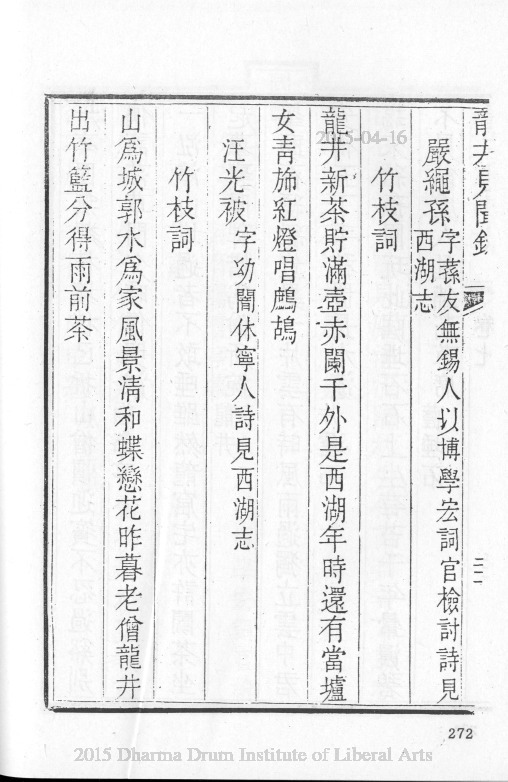 龍井見聞錄
嚴繩孫字蓀友無錫人以博學宏詞官檢討詩見
西湖志
竹枝詞
龍井新茶貯滿壺赤闌干外是西湖年時還有當壚
女靑斾紅燈唱鷓鴣
汪光被字幼闇休寧人詩見西湖志
竹枝詞
山爲城郭水爲家風景淸和蝶戀花昨暮老僧龍井
出竹籃分得雨前茶
2015-04-16
272
2015 Dharma Drum Institute of Liberal Arts